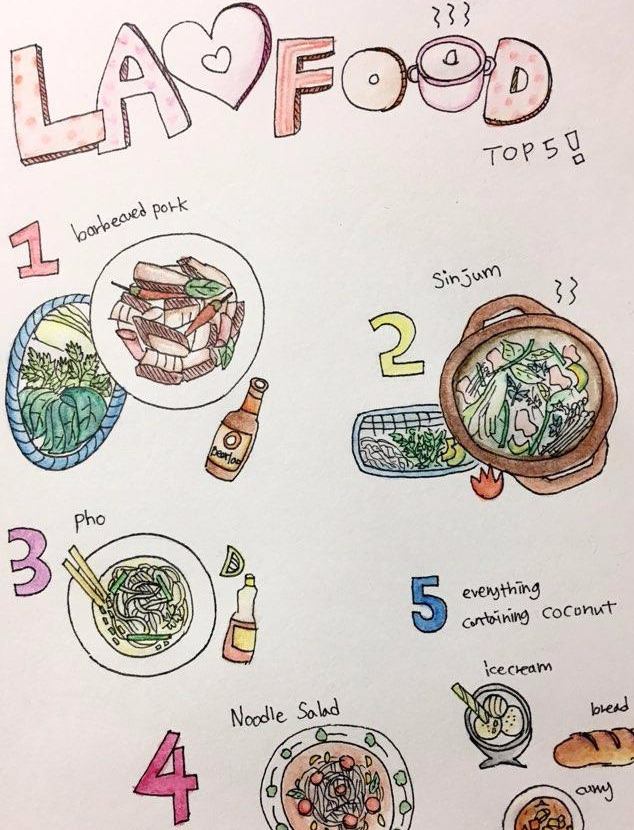 LA♡ FOOD
TOP 5!
1 barbecued pork
beerlao
2 Sinjum
3 pho
4 Noodle Salad
5 everything
containing coconut
icecream
bread
curry